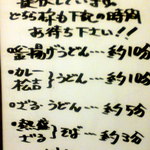 提供しています。
とちらも下記の時間
お待ち下さい!!
・釜揚げうどん…約10分
・カレー
うどん…約10分
・ざる・うどん…約5分
・ざる そば…約3分